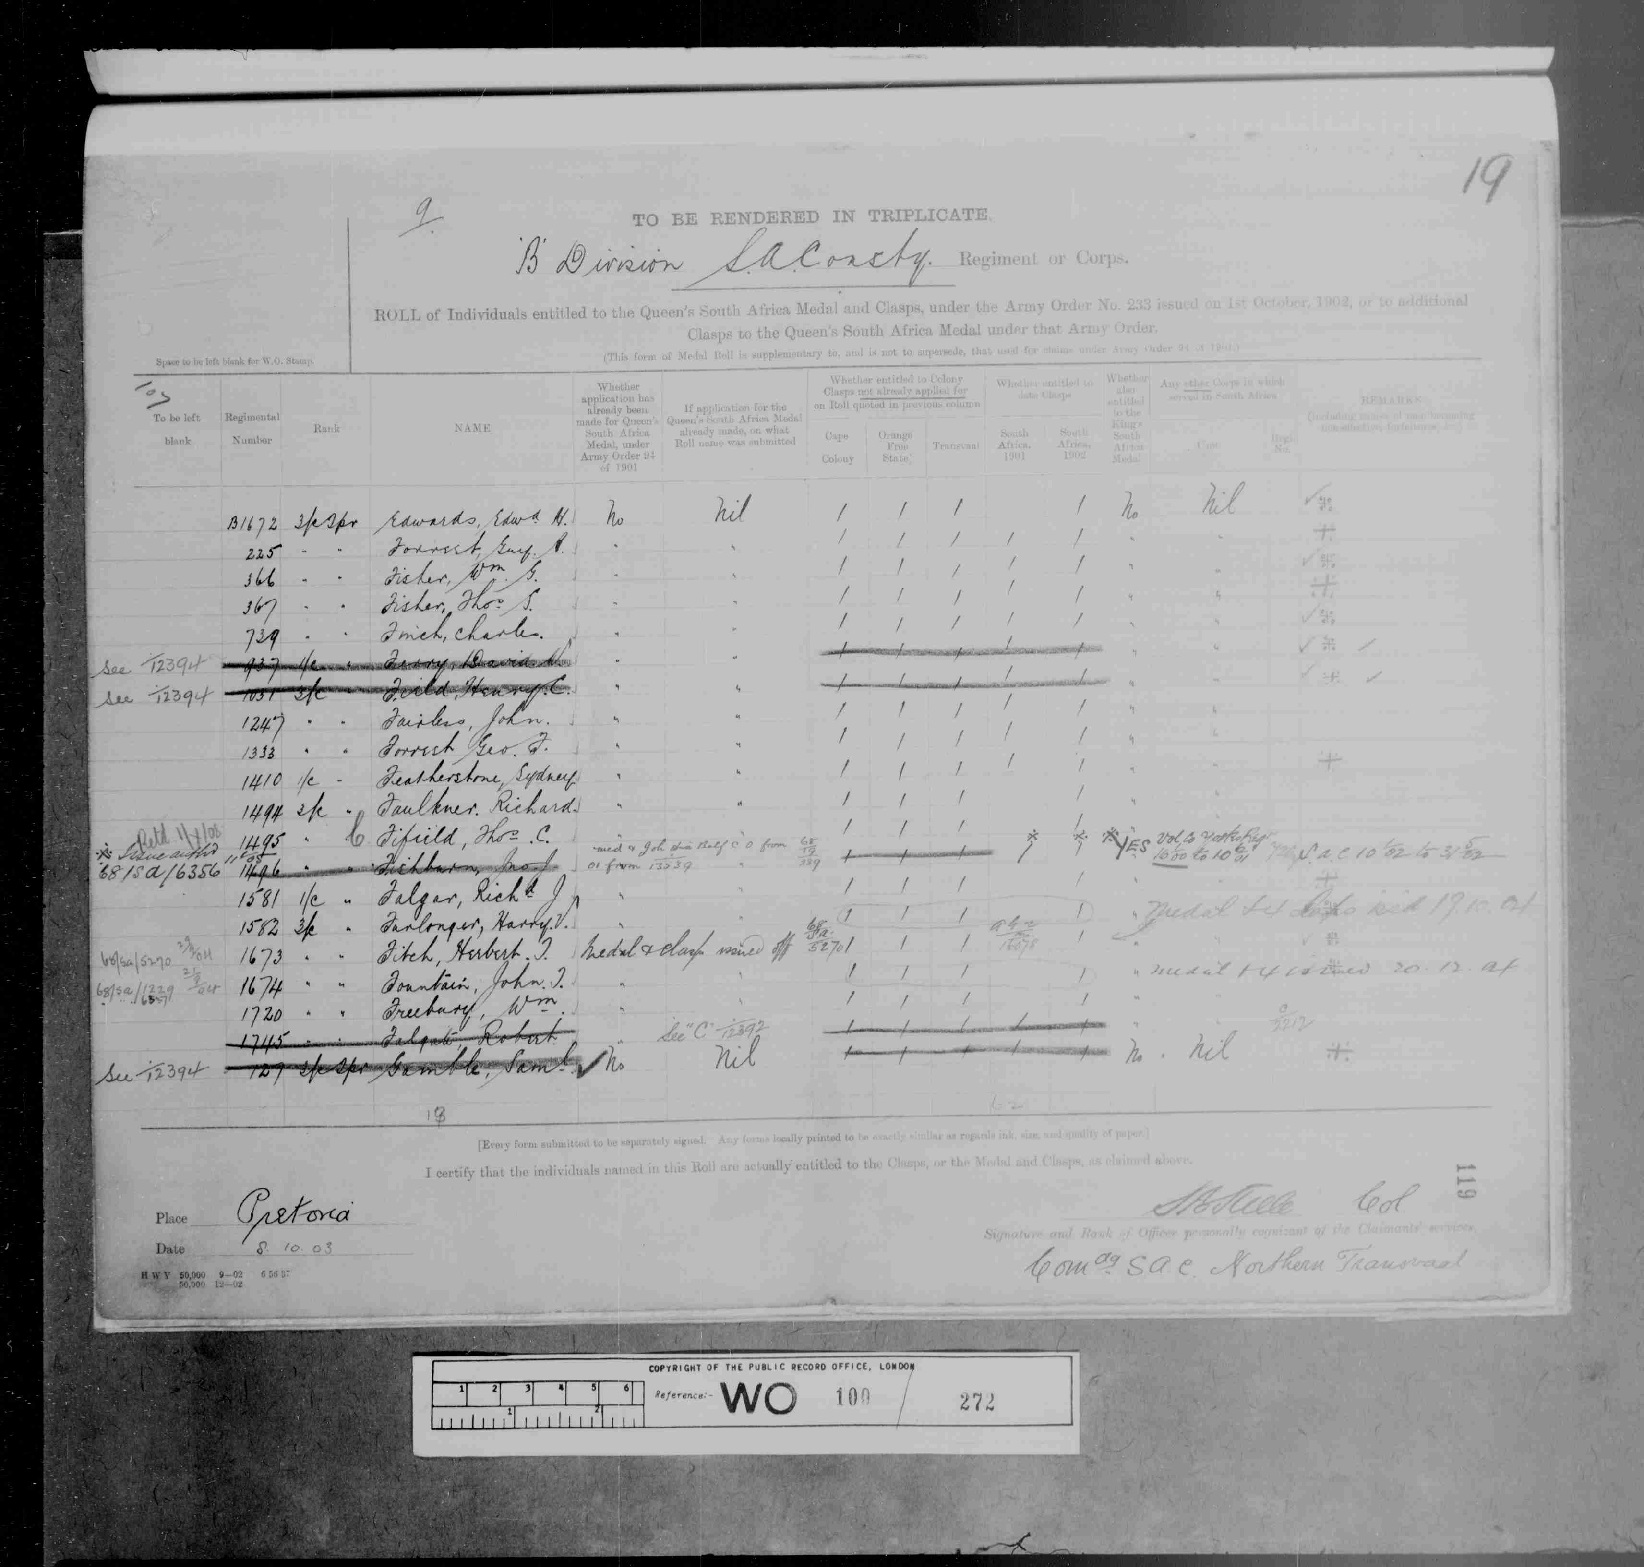 19
9.
TO BE RENDERED IN TRIPLICATE.
'B' Division S.A. Consty. Regiment or Corps.
ROLL of Individuals entitled to the Queen's South Africa Medal and Clasps, under the Army Order No. 233 issued on 1st October, 1902, or to additional
Clasps to the Queen's South Africa Medal under that Army Order.
(This form of Medal Roll is supplementary to, and is not to supersede, that used for claims under Army Order 94 of 1901.)
Space to be left blank for W.O. Stamp.
107
To be left blank
Regimental Number
Rank
NAME
Whether application has already been made for Queen's South Africa Medal, under Army Order 94 of 1901
If application for the Queen's South Africa Medal already made, on what Roll name was submitted
Whether entitled to Colony Clasps not already applied for on Roll quoted in previous column
Cape Colony
Orange Free State
Transvaal
Whether entitled to date Clasps
South Africa, 1901
South Africa, 1902
Whether also entitled to the King's South Africa Medal
Any other Corps in which served in South Africa
Corps
Regtl. No.
REMARKS
B1672 3/c Tpr Edwards, Edwd H. No Nil / / / / No Nil
225 - " Forrest, Guy. / / / / /
366 - " Fisher, Wm. G. / / / / /
367 - " Fisher, Thos S. / / / / /
739 - " Finch, Charles. / / / / /
See 12394 937 1/c " Ferry, David / / / / /
See 12394 1031 3/c " Field, Henry C. / / / / /
1247 " " Fairless, John. / / / / /
1333 " " Forrest Geo. F. / / / / /
1410 1/c - Featherstone, Sydney / / / / /
1494 3/c " Faulkner. Richard. / / / /
1495 " Fifield, Thos. C. / / / /
68/SA/6356 1496 " " Fishburn, Jno J / / / / / YES S.A.C
1581 1/c " Falgar, Richd J / / / /
1582 3/c " Furlonger, Harry. V. / / / / Medal
68/SA/5270 1673 " " Fitch, Herbert. T. Medal & clasp issued off 68/SA/5270 / / / /
68/SA/1229 1674 " " Fountain, John. T. / / / / medal & 4 issued 20.12.04
1720 " " Freebury, Wm. / / / /
1745 " " Falgate, Robert See "C" 12392 / / / / /
See 12394 127 3/c Tpr Gamble, Saml. No Nil / / / / / No. Nil
18
[Every form submitted to be separately signed. Any forms locally printed to be exactly similar as regards ink, size, and quality of paper.]
I certify that the individuals named in this Roll are actually entitled to the Clasps, or the Medal and Clasps, as claimed above.
119
Place Pretoria
SB Steele Col
Signature and Rank of Officer personally cognizant of the Claimants' services.
Date 8.10.03
Comdg S.A.C. Northern Transvaal
H W Y 50,000 9—02
50,000 12—02
COPYRIGHT OF THE PUBLIC RECORD OFFICE, LONDON
1 2 3 4 5 6
1 2
Reference:- WO 100 / 272